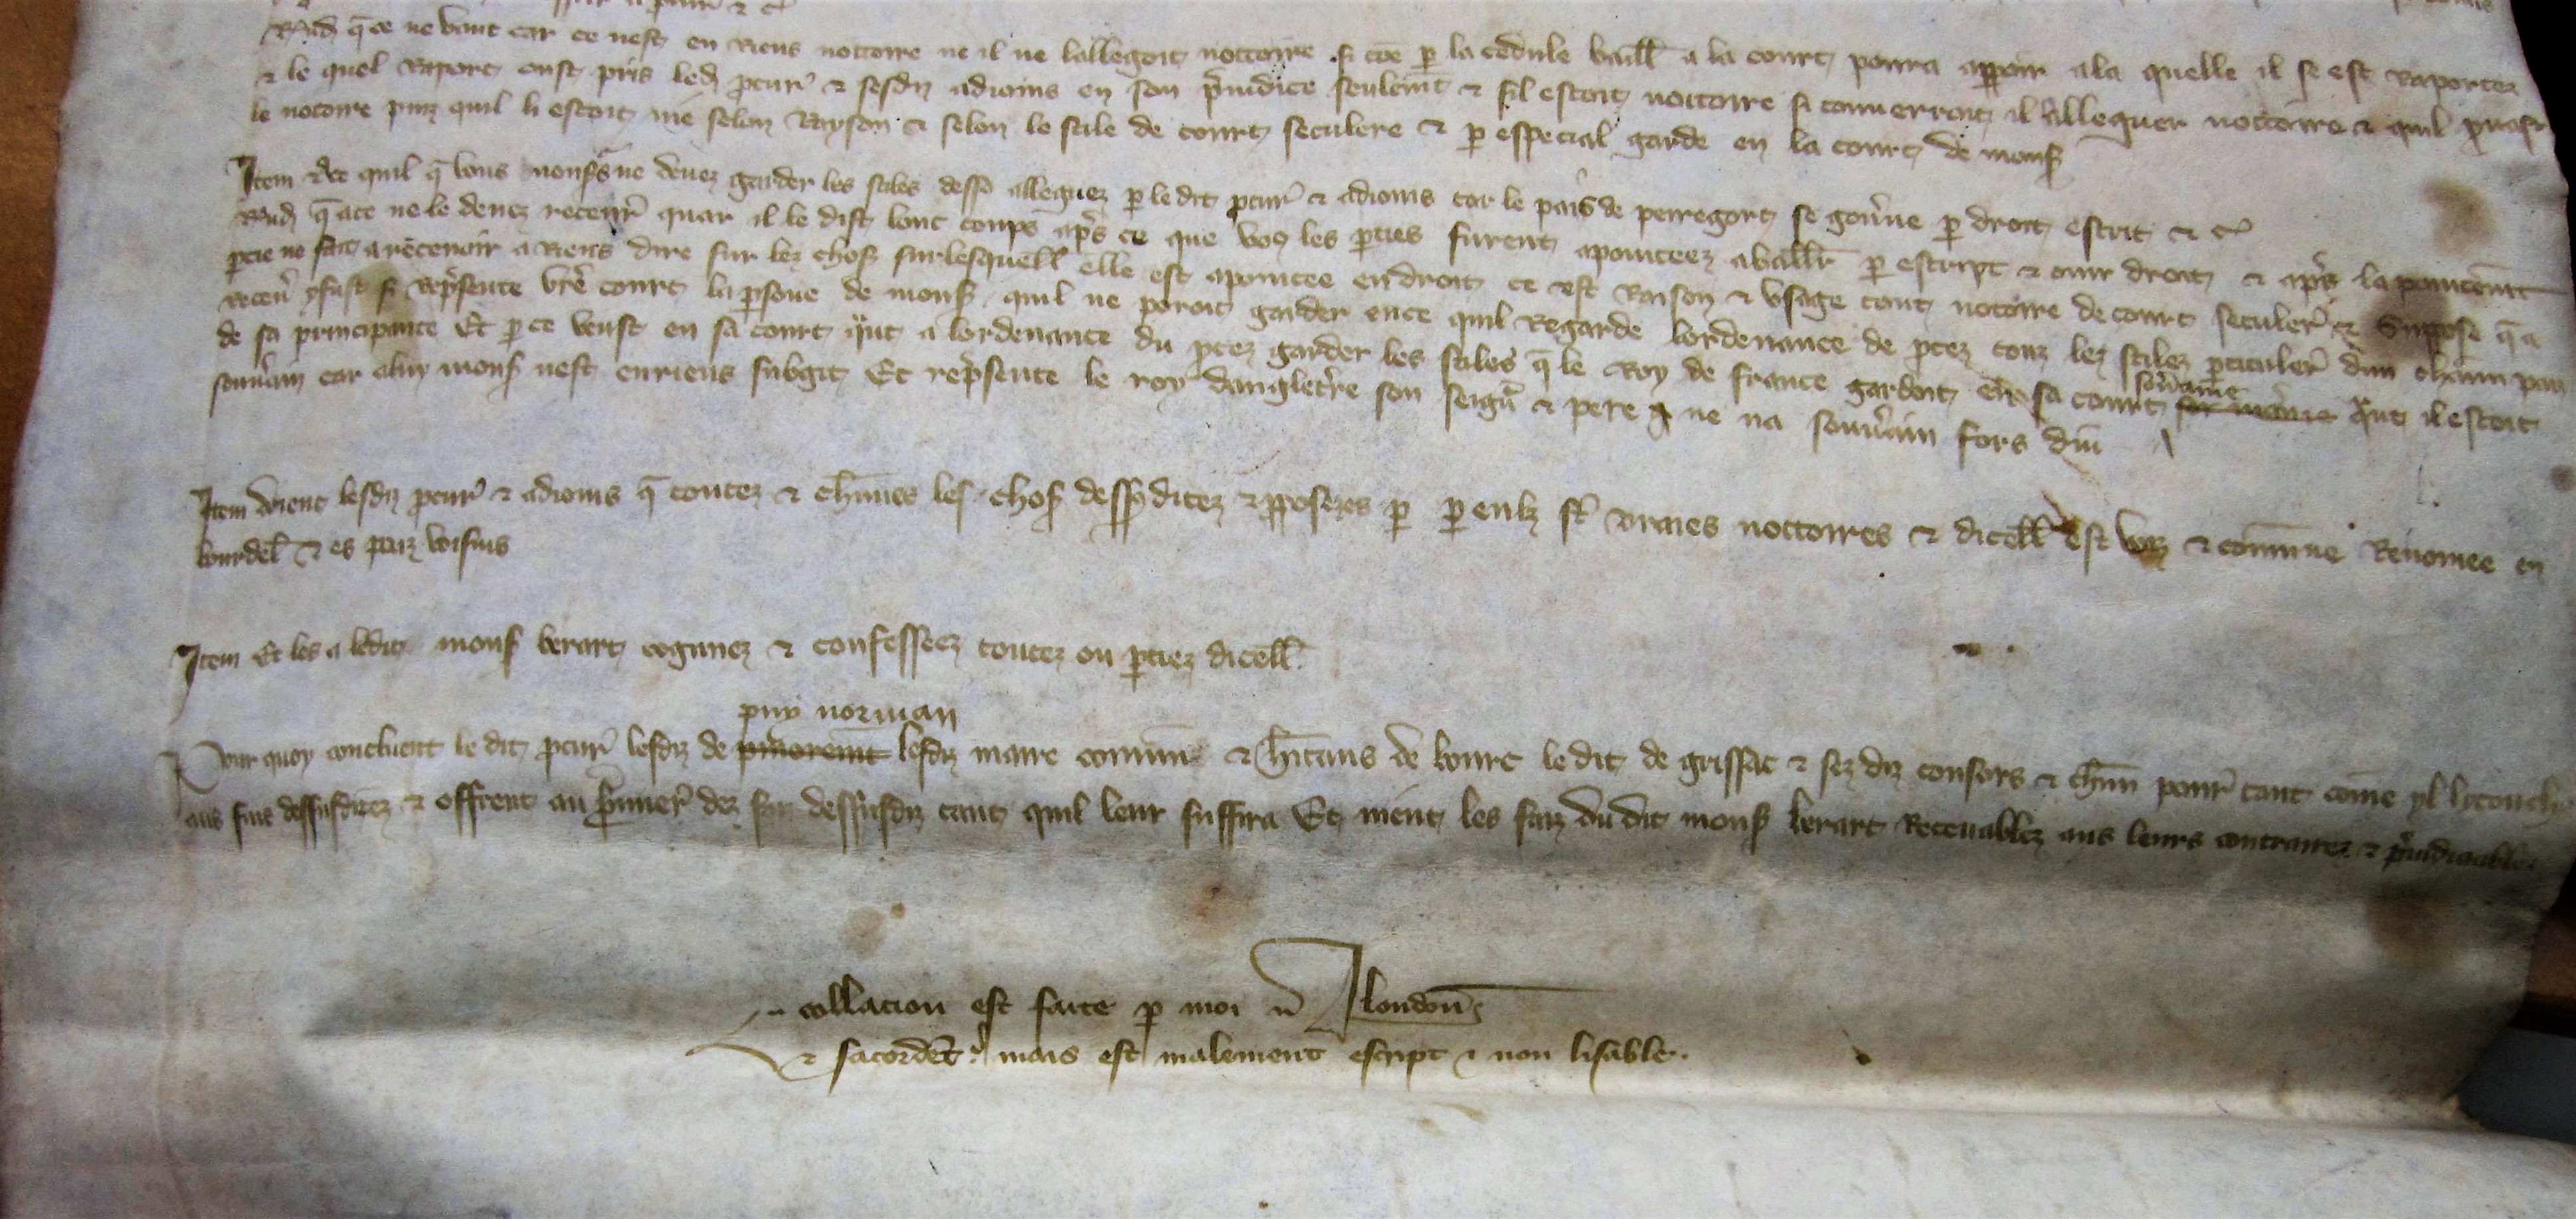 Rñd q̄ ce ne vaut car ce nest en riens nottoire ne il ne lallegoit nottoire si cōe p la cedule baill a la court poura apparoir a la quelle il se est raportez
& le quel raport oust pris led pcur & sesdiz adioins en son preiudice seulemt & sil estoit nottoire si convenroit il allequer nottoire & quil
le notoire puiz quil li estoit nié selon rayson & selon le stile de court seculere & p especial garde en la court de mons
Item dit quil q̄ vous mons ne devez garder les stiles dess alleguez p le dit pcur & adioins car le païs de peiregort se gouvne p droit escrit & c
Rñd q̄ a ce ne le devez recevr quar il le dist lonc temps aprs ce que vos les pties furent apointeez a baillr p escript & ouir droit & aprs lapointemt
ptie ne fait a recevoir a riens dire sur lez chos surlesquell elle est apointee en droit ce est raison & usage tout notoire de court seculer & suppose q̄ a
recevr yfust si represente vre court la psone de mons quil ne poroit garder en ce quil regarde lordenance de pcez touz lez stilez pticuler dun chaun païs
de sa principauté Et p ce veust en sa court qnt a lordenance du pcez garder les stiles q̄ le Roy de france gardoit en sa court souvaine qnt il estoit
souvain car a luy mons nest en riens subgit Et represente le roy dangletrre son seignr & pere & ne na souvrain fors diu
Item dient lesdiz pcur & adioins q̄ toutez & chunes les chos dessdictez & pposeez p p eulz st vraies nottoires & dicell est voiz & comune renomee en
bourdel & es païz voisins
Item Et les a ledit mons berart cogunez & confesseez toutez ou ptiez dicell
puy norman
Pour quoy concluent le dit pcur lesdiz de lesdiz maire comun & hitans de bourc le dit de grissac & sez diz consors & chun pour tant come yl li touch
aus fins dessusdictez & offrent au prouver dez faiz dessusdiz tant quil leur suffira Et nient les faiz du dit mons berart recevablez aus leurs contrairez & preiudiciable
collacion est faite p moi N London
& sacordēt mais est malement escript & non lisable